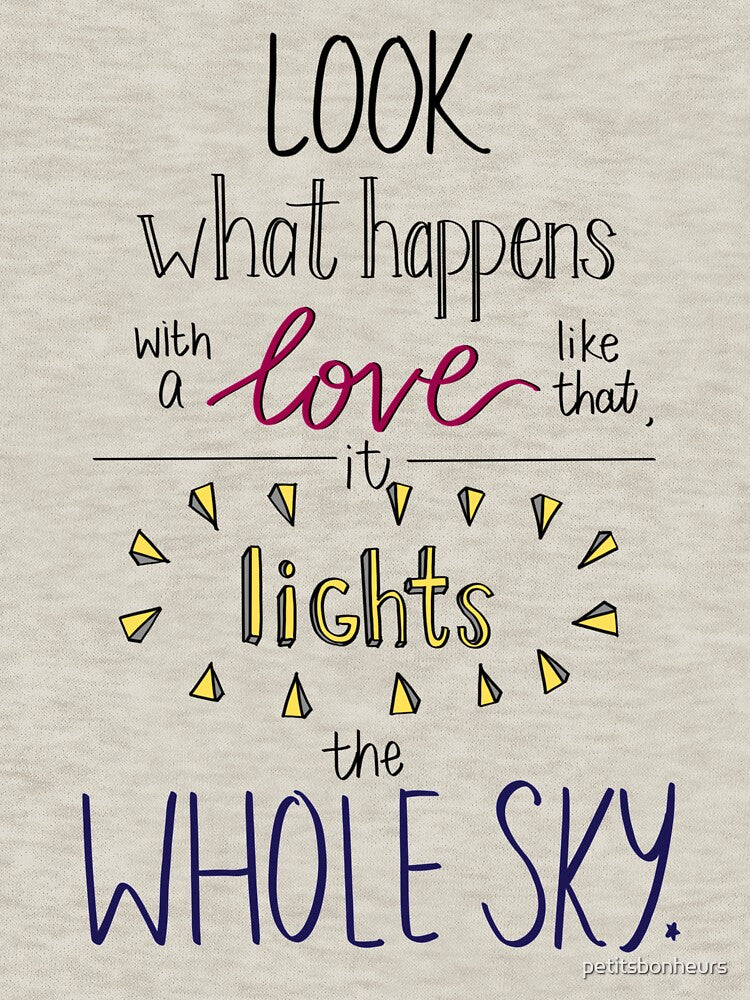 LOOK
what happens
with a love like that,
it
lights
the
WHOLE SKY.
petitsbonheurs